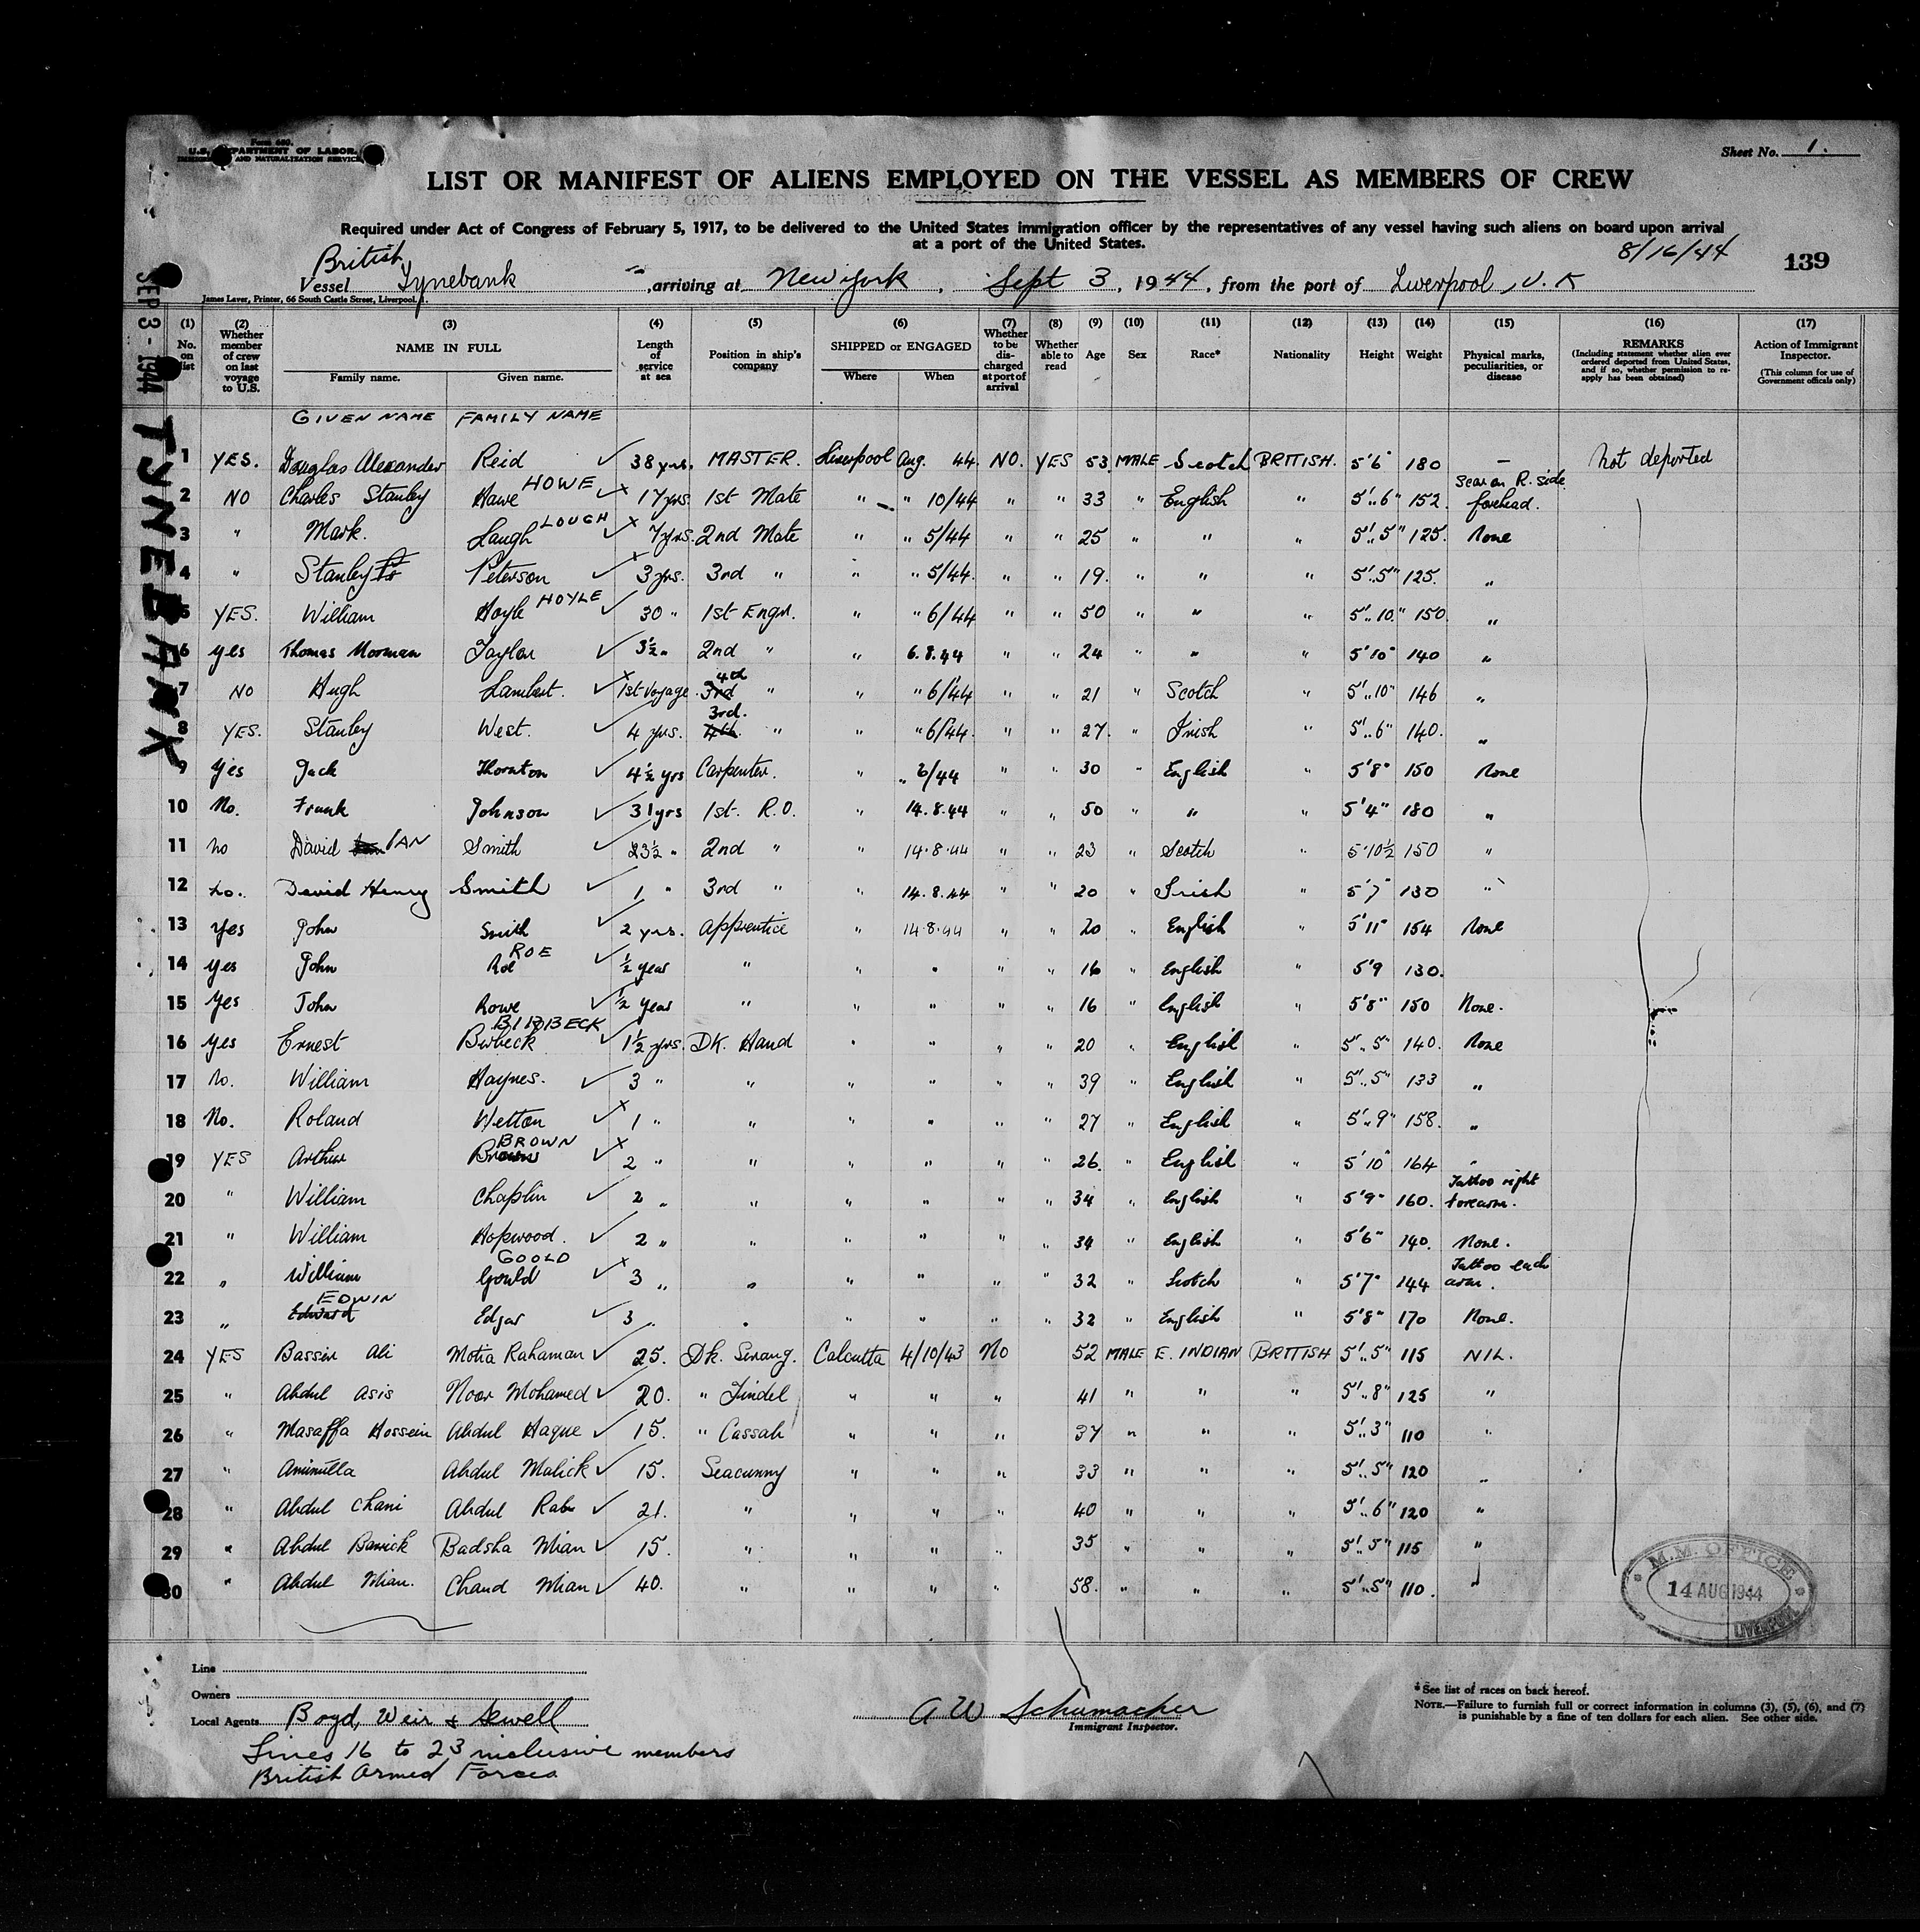 Form 680.
U.S. DEPARTMENT OF LABOR.
AND NATURALIZATION SERVICE
Sheet No. 1.
LIST OR MANIFEST OF ALIENS EMPLOYED ON THE VESSEL AS MEMBERS OF CREW
Required under Act of Congress of February 5, 1917, to be delivered to the United States immigration officer by the representatives of any vessel having such aliens on board upon arrival
at a port of the United States.
8/16/44
139
British
Vessel Tynebank , arriving at New York , Sept 3 , 1944 , from the port of Liverpool, U.K
James Laver, Printer, 66 South Castle Street, Liverpool, 1.
SEP 3 - 1944
TYNEBANK
(1) No. on list (2) Whether member of crew on last voyage to U.S. (3) NAME IN FULL Family name. Given name. (4) Length of service at sea (5) Position in ship's company (6) SHIPPED or ENGAGED Where When (7) Whether to be discharged at port of arrival (8) Whether able to read (9) Age (10) Sex (11) Race* (12) Nationality (13) Height (14) Weight (15) Physical marks, peculiarities, or disease (16) REMARKS (Including statement whether alien ever ordered deported from United States, and if so, whether permission to re-apply has been obtained) (17) Action of Immigrant Inspector. (This column for use of Government officials only)
GIVEN NAME FAMILY NAME
1 YES. Douglas Alexander Reid ✓ 38 yrs. MASTER. Liverpool Aug. 44. NO. YES 53 MALE Scotch BRITISH. 5'6" 180 — Not deported
2 NO Charles Stanley Hawe HOWE ✓ x 17 yrs. 1st Mate " " 10/44 " " 33 " English " 5'.6" 152. Scar on R. side forehead.
3 " Mark. Laugh LOUGH ✓ x 7 yrs. 2nd Mate " " 5/44 " " 25 " " " 5'.5" 125. None
4 " Stanley Peterson ✓ x 3 yrs. 3rd " " " 5/44. " " 19. " " " 5'.5" 125. "
5 YES. William Hoyle HOYLE ✓ 30 " 1st Engr. " " 6/44 " " 50 " " " 5'.10" 150. "
6 yes Thomas Norman Taylor ✓ 3½ " 2nd " " 6.8.44 " " 24 " " " 5'10" 140 "
7 NO Hugh Lambert. ✓ x 1st Voyage 3rd 4th " " " 6/44 " " 21 " Scotch " 5'.10" 146 "
8 YES. Stanley West. ✓ 4 yrs. 4th 3rd. " " " 6/44. " " 27. " Irish " 5'.6" 140. "
9 Yes Jack Thornton ✓ 4½ yrs Carpenter. " " 6/44 " " 30 " English " 5'8" 150 None
10 No. Frank Johnson ✓ 31 yrs 1st. R.O. " 14.8.44 " " 50 " " " 5'4" 180 "
11 no David IAN Smith ✓ 23½ " 2nd " " 14.8.44 " " 23 " Scotch " 5'10½ 150 "
12 No. David Henry Smith ✓ 1 " 3rd " " 14.8.44 " " 20 " Irish " 5'7" 130 "
13 Yes John Smith ✓ 2 yrs. Apprentice " 14.8.44 " " 20 " English " 5'11" 154 None
14 Yes John Roe ROE ✓ ½ year " " " " " 16 " English " 5'9 130.
15 Yes John Rowe ✓ ½ year " " " " " 16 " English " 5'8" 150 None.
16 Yes Ernest Birbeck BIRBECK ✓ 1½ yrs. Dk. Hand " " " " 20 " English " 5'.5" 140. None
17 No. William Haynes. ✓ 3 " " " " " " 39 " English " 5'.5" 133 "
18 No. Roland Wetton ✓ x 1 " " " " " " 27 " English " 5'.9" 158. "
19 YES Arthur Brown BROWN ✓ x 2 " " " " " " 26. " English " 5'10" 164 "
20 " William Chaplin ✓ 2 " " " " " " 34 " English " 5'9" 160. Tattoo right forearm.
21 " William Hopwood. ✓ 2 " " " " " " 34 " English " 5'6" 140. None.
22 " William Gould GOOLD ✓ x 3 " " " " " " 32 " Scotch " 5'7" 144 Tattoo each arm.
23 " Edward EDWIN Edgar ✓ 3 " " " " " " 32 " English " 5'8" 170 None.
24 YES Bassir Ali Motia Rahaman ✓ 25. Dk. Serang. Calcutta 4/10/43 No 52 MALE E. INDIAN BRITISH 5'.5" 115 NIL.
25 " Abdul Asis Noor Mohamed ✓ 20. " Tindel " " " 41 " " " 5'.8" 125 "
26 " Masaffa Hossein Abdul Haque ✓ 15. " Cassab " " " 37 " " " 5'.3" 110 "
27 " Aminulla Abdul Malick ✓ 15. Seacunny " " " 33 " " " 5'.5" 120 "
28 " Abdul Chani Abdul Rab ✓ 21. " " " " 40 " " " 5'.6" 120 "
29 " Abdul Barrick Badsha Mian ✓ 15. " " " " 35 " " " 5'.5" 115 "
30 " Abdul Mian. Chand Mian ✓ 40. " " " " 58. " " " 5'.5" 110. "
M.M. OFFICE
14 AUG 1944
LIVERPOOL
Line
Owners
Local Agents Boyd, Weir & Sewell
Lines 16 to 23 inclusive members
British Armed Forces
A W Schumacher
Immigrant Inspector.
* See list of races on back hereof.
NOTE.—Failure to furnish full or correct information in columns (3), (5), (6), and (7)
is punishable by a fine of ten dollars for each alien. See other side.